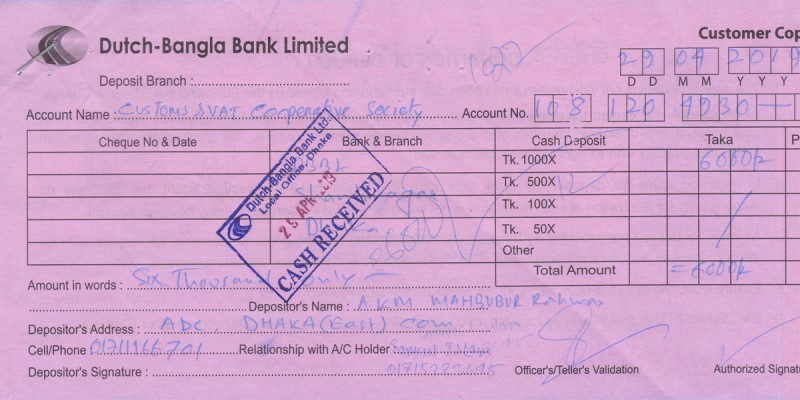 Customer Cop
Dutch-Bangla Bank Limited
1027
29 04 2019
D D M M Y Y Y
Deposit Branch :
Account Name : CUSTOMS & VAT Cooperative Society Account No. 108 120 4930
Cheque No & Date Bank & Branch Cash Deposit Taka P
DBBL Tk. 1000X 6000/-
Tk. 500X 12
Tk. 100X
Dhaka Tk. 50X
Other
Total Amount = 6000/-
Dutch-Bangla Bank Ltd.
Local Office, Dhaka
29 APR 2019
CASH RECEIVED
Amount in words : Six Thousand only
Depositor's Name : AKM MAHBUBUR Rahman
Depositor's Address : ADC, DHAKA (East) Com
Cell/Phone 01711966701 Relationship with A/C Holder :
Depositor's Signature : Officer's/Teller's Validation Authorized Signat